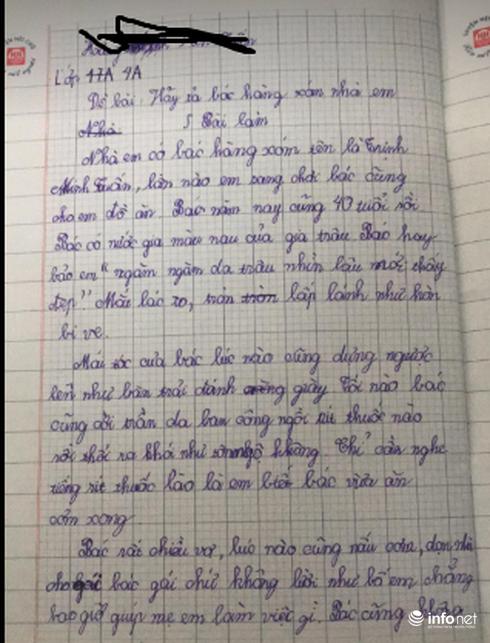 Lớp 4A
Đề bài: Hãy tả bác hàng xóm nhà em
Bài làm
Nhà em có bác hàng xóm tên là Trinh
Minh Tuấn, lần nào em sang chơi bác cũng
cho em đồ ăn. Bác năm nay cũng 40 tuổi rồi
Bác có nước gia màu nau của gia trâu Bác hay
bảo em "ngăm ngăm da trâu nhìn lâu mới thấy
đẹp" Mắt bác to, tròn lấp lánh như hòn
bi ve.
Mái tóc của bác lúc nào cũng dựng ngược
lên như bàn trải đánh giày Tối nào bác
cũng cởi trần da ban công ngồi rít thuốc nào
rồi thổi ra khói như Chỉ cần nghe
tiếng rít thuốc lào là em biết bác vừa ăn
cơm xong
Bác rất chiều vợ, lúc nào cũng nấu cơm, dọn nhà
cho bác gái chứ không lười như bố em chẳng
bao giờ giúp mẹ em làm việc gì. Bác cũng
infonet